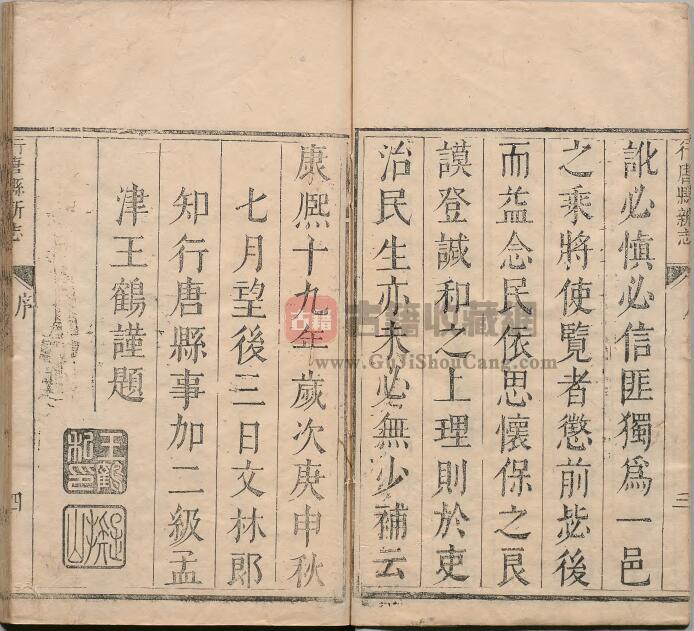 行唐縣新志
三
訛必慎必信匪獨爲一邑
之乘將使覽者懲前毖後
而益念民依思懷保之艮
謨登諴和之上理則於吏
治民生亦未必無少補云
康熈十九年歲次庚申秋
七月望後三日文林郎
知行唐縣事加二級孟
津王鶴謹題
王鶴
私印
行唐縣新志
序
四
古籍
古籍收藏網
www.GuJiShouCang.com